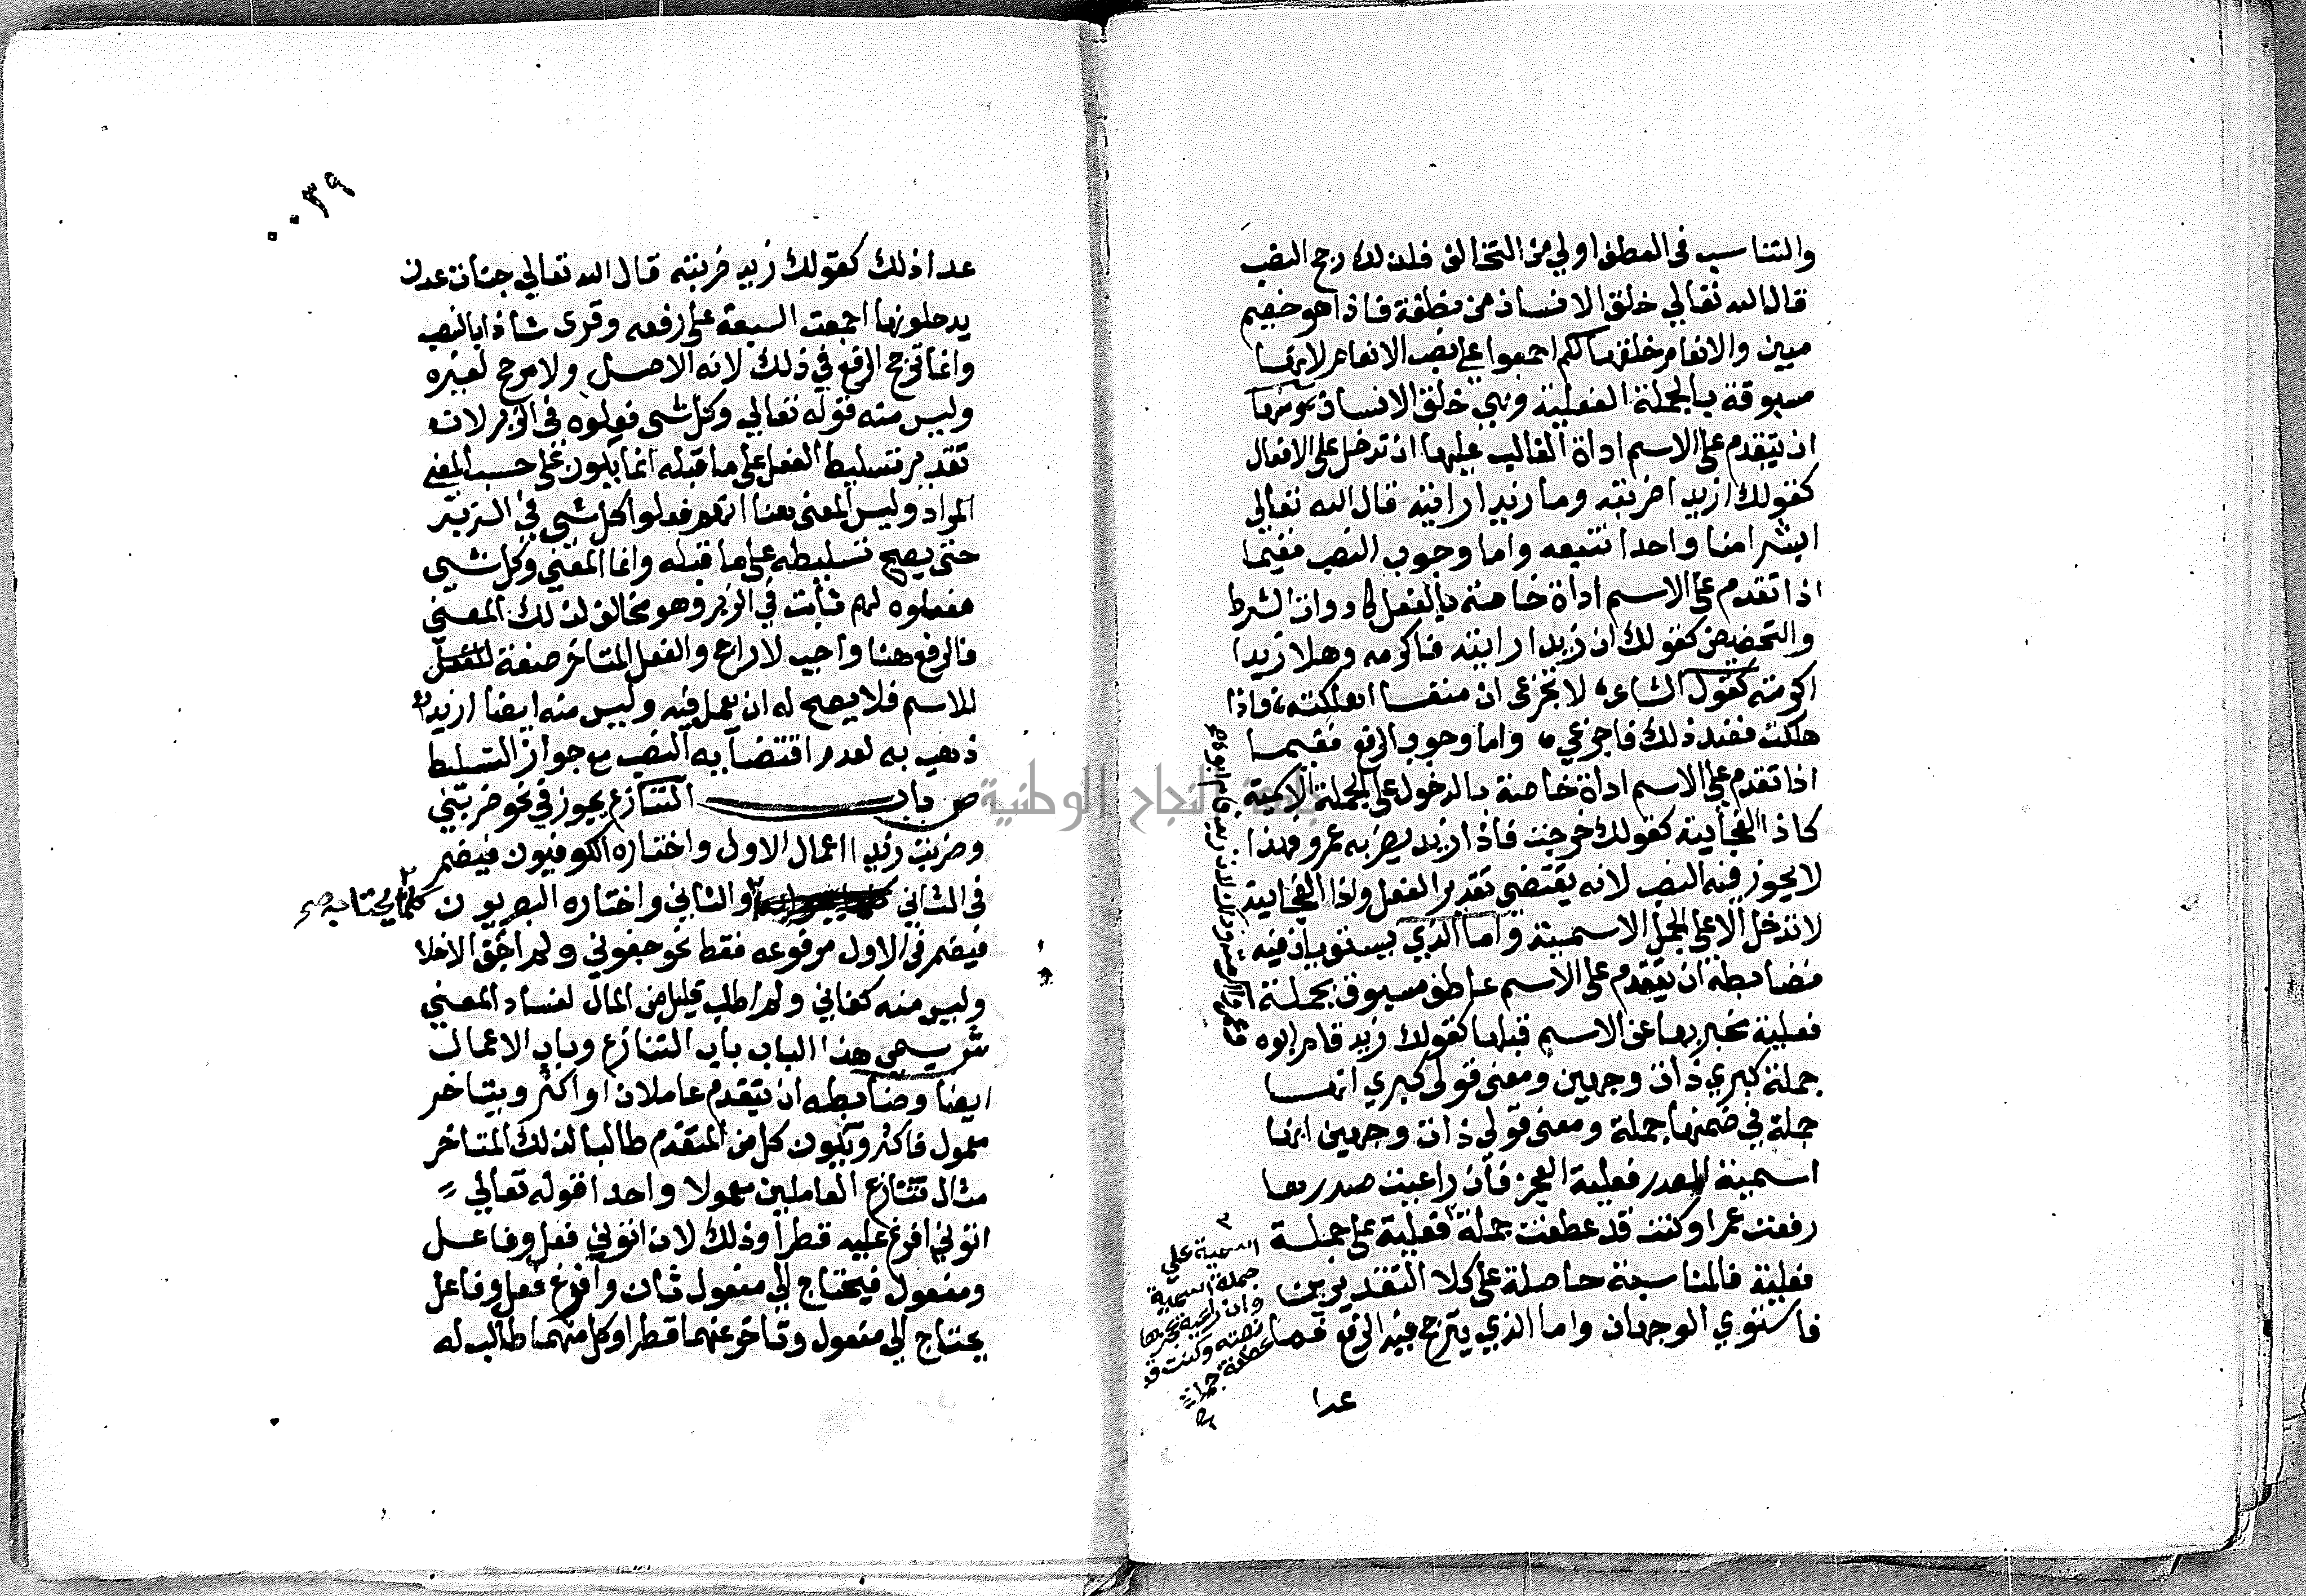 والتناسب فى العطف اولي من التخالف فلذلك رجح النصب
قال الله تعالي خلق الانسان من نطفة فاذا هو خصيم
مبين والانعام خلقها لكم اجمعوا على نصب الانعام لانها
مسبوقة بالجملة الفعلية وهي خلق الانسان ومنها
ان يتقدم على الاسم اداة الغالب عليها ان تدخل على الافعال
كقولك ازيدا ضربته وما زيدا رايته قال الله تعالي
ابشرا منا واحدا نتبعه واما وجوب النصب ففيما
اذا تقدم على الاسم اداة خاصة بالفعل كادوات الشرط
والتحضيض كقولك ان زيدا رايته فاكرمه وهلا زيدا
اكرمته كقول الشاعر لا تجزعى ان منفسا اهلكته فاذا
هلكت فعند ذلك فاجزعي واما وجوب الرفع ففيما
اذا تقدم على الاسم اداة خاصة بالدخول على الجملة الاسمية
كاذا الفجائية كقولك خرجت فاذا زيد يضربه عمرو فهذا
لا يجوز فيه النصب لانه يقتضي تقدير الفعل واذا الفجائية
لا تدخل الا على الجمل الاسمية واما الذي يستويان فيه
فضابطه ان يتقدم على الاسم عاطف مسبوق بجملة
فعلية مخبر بها عن الاسم قبلها كقولك زيد قام ابوه
جملة كبري ذات وجهين ومعنى قولى كبري انها
جملة في ضمنها جملة ومعنى قولي ذات وجهين انها
اسمية الصدر فعلية العجز فان راعيت صدرها
رفعت عمرا وكنت قد عطفت جملة فعلية على جملة
فعلية فالمناسبة حاصلة على كلا التقديرين
فاستوي الوجهان واما الذي يترجح فيه الرفع فما
اسمية علي
جملة اسمية
وان راعيت عجزها
نصبته وكنت قد
عطفت جملة
عدا
٠٠٣٩
عدا ذلك كقولك زيد ضربته قال الله تعالي جنات عدن
يدخلونها اجمعت السبعة على رفعه وقرى شاذا بالنصب
وانما ترجح الرفع في ذلك لانه الاصل ولا مرجح لغيره
وليس منه قوله تعالي وكل شى فعلوه فى الزبر لان
تقدير تسليط الفعل على ما قبله انما يكون على حسب المعني
المراد وليس المعنى هنا انهم فعلوا كل شي في الزبر
حتى يصح تسليطه على ما قبله وانما المعني وكل شيي
مفعلوه لهم ثابت في الزبر وهو مخالف لذلك المعني
فالرفع هنا واجب لا راجح والفعل المتاخر صفة
للاسم فلا يصح له ان يعمل فيه وليس منه ايضا ازيد
ذهب به لعدم اقتضايه النصب مع جواز التسليط
ص باب التنازع يجوز في نحو ضربني
وضربت زيدا اعمال الاول واختاره الكوفيون فيضمر
فى الثانى كلما يحتاجه صح والثاني واختاره البصريون
فيضمر فى الاول مرفوعه فقط نحو جفوني ولم اجف الاخلا
وليس منه كفاني ولم اطلب قليل من المال لفساد المعني
ش يسمى هذا الباب باب التنازع وباب الاعمال
ايضا وضابطه ان يتقدم عاملان او اكثر ويتاخر
معمول فاكثر ويكون كل من المتقدم طالبا لذلك المتاخر
مثال تنازع العاملين معمولا واحدا قوله تعالي
اتوني افرغ عليه قطرا وذلك لان اتوني فعل وفاعل
ومفعول فيحتاج الي مفعول ثان وافرغ فعل وفاعل
يحتاج الي مفعول وتاخر عنهما قطرا وكل منهما طالب له
جامعة النجاح الوطنية